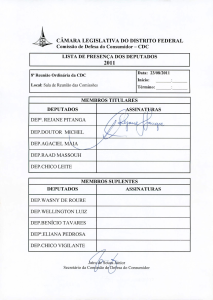 CÂMARA LEGISLATIVA DO DISTRITO FEDERAL
Comissão de Defesa do Consumidor – CDC
LISTA DE PRESENÇA DOS DEPUTADOS
2011
8ª Reunião Ordinária da CDC
Local: Sala de Reunião das Comissões
Data: 23/08/2011
Início:
Término:
MEMBROS TITULARES
DEPUTADOS ASSINATURAS
DEPª. REJANE PITANGA
DEP.DOUTOR MICHEL
DEP.AGACIEL MAIA
DEP.RAAD MASSOUH
DEP.CHICO LEITE
MEMBROS SUPLENTES
DEPUTADOS ASSINATURAS
DEP.WASNY DE ROURE
DEP.WELLINGTON LUIZ
DEP.BENÍCIO TAVARES
DEPª ELIANA PEDROSA
DEP.CHICO VIGILANTE
Secretário da Comissão de Defesa do Consumidor